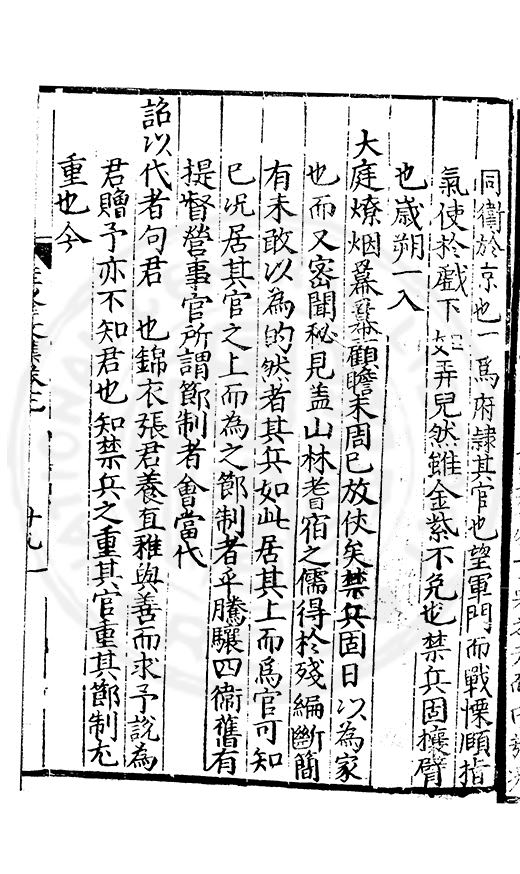 同衛於京也一爲府隷其官也望軍門而戰慄頤指
氣使於戲下如弄兒然雖金紫不免也禁兵固攘臂
也歲朔一入
大庭燎烟羃羃顧瞻未周已放伏矣禁兵固日以為家
也而又密聞秘見盖山林耆宿之儒得於殘編斷簡
有未敢以為的然者其兵如此居其上而爲官可知
已况居其官之上而為之節制者乎騰驤四衛舊有
提督營事官所謂節制者會當代
詔以代者句君 也錦衣張君養直雅與善而求予說為
君贈予亦不知君也知禁兵之重其官重其節制尤
重也今